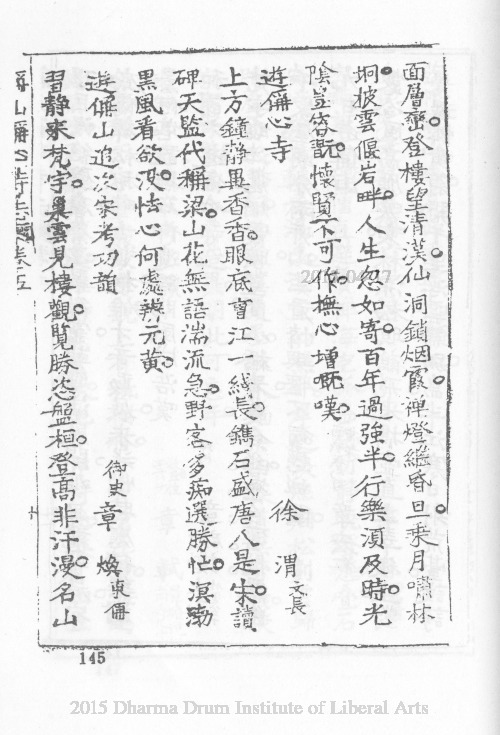 面層巒登樓望清漢仙洞鎖烟霞禅燈繼昏旦乗月嘯林
坰披雲偃岩畔人生忽如寄百年過強半行樂湏及時光
陰豈容翫懷賢不可作撫心增嘅嘆
遊偁心寺
徐渭文長
上方鐘静異香杳眼底曹江一綫長鐫石盛唐八是宋讀
碑天監代稱梁山花無語湍流急野客多痴選勝忙溟渤
黒風看欲没怯心何處辨元黄
遊偁山追次宋考功韻
御史章煥東偁
習静来梵宇巢雲見樓觀覧勝恣盤桓登髙非汗漫名山
145
2015 Dharma Drum Institute of Liberal Arts